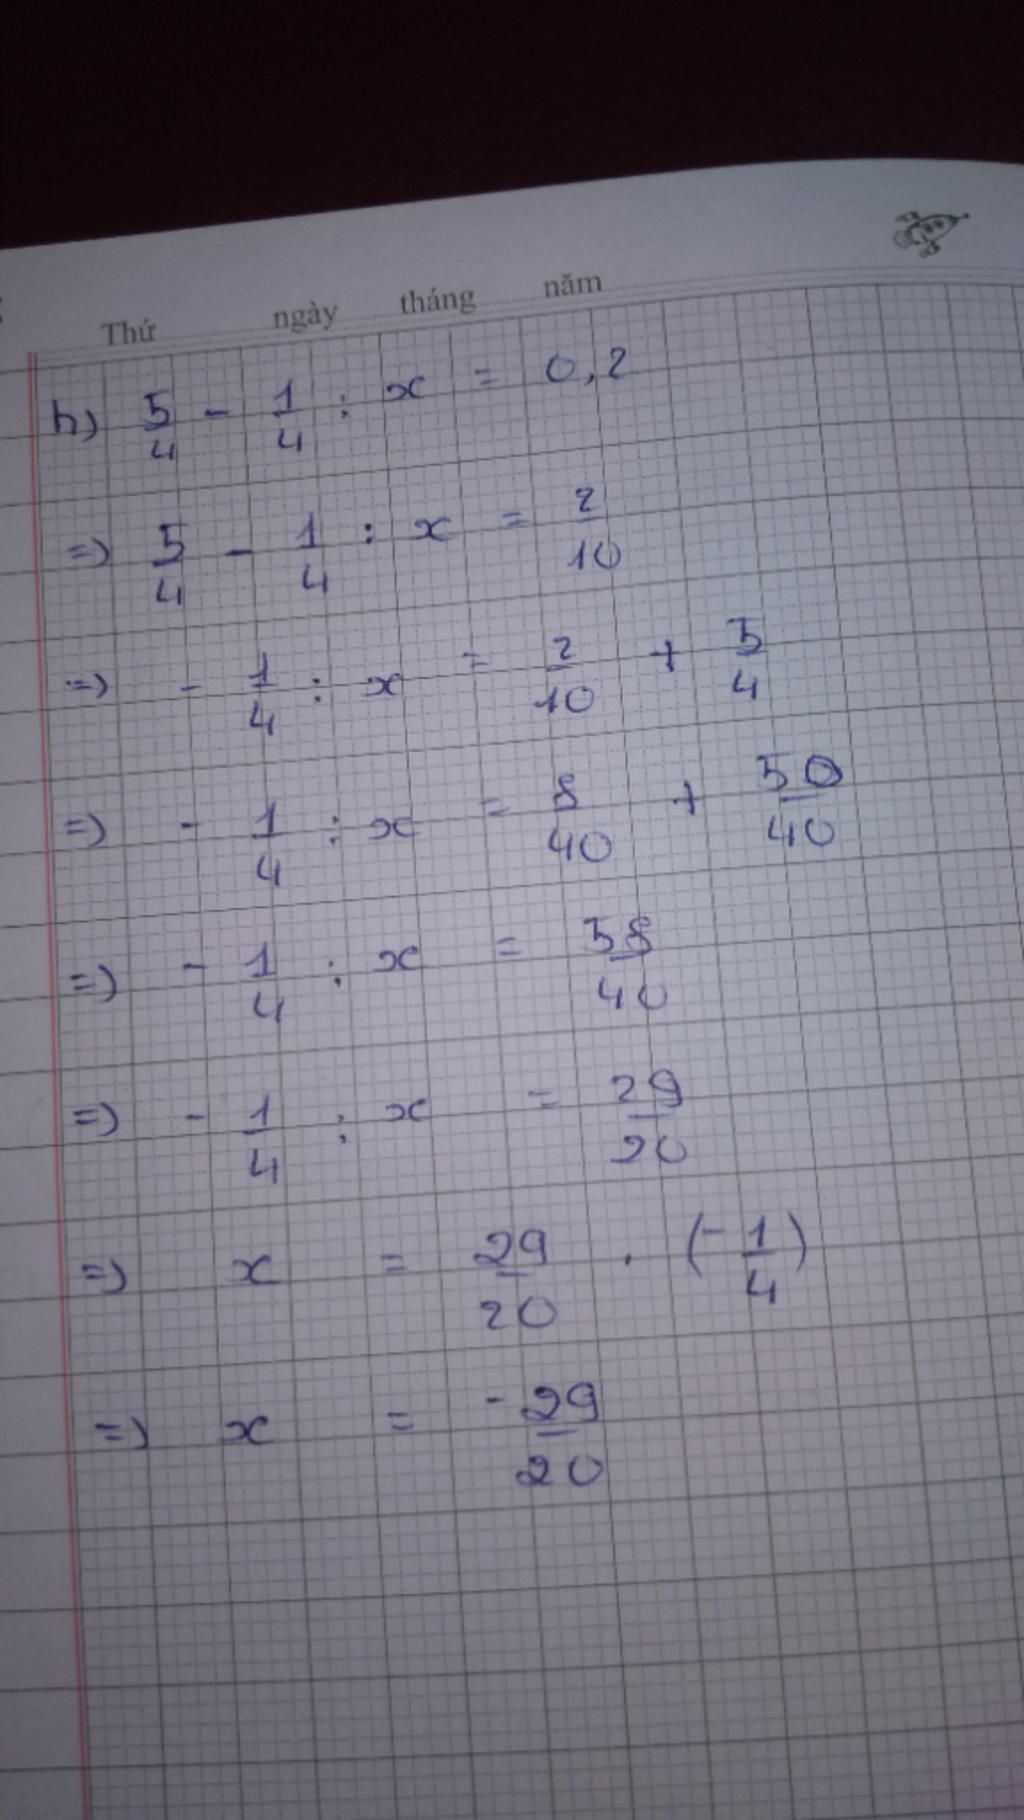 Thứ ngày tháng năm
h) 5/4 - 1/4 : x = 0,2
=) 5/4 - 1/4 : x = 2/10
=) - 1/4 : x = 2/10 + 5/4
=) - 1/4 : x = 8/40 + 50/40
=) - 1/4 : x = 58/40
=) - 1/4 : x = 29/20
=) x = 29/20 . (- 1/4)
=) x = -29/20